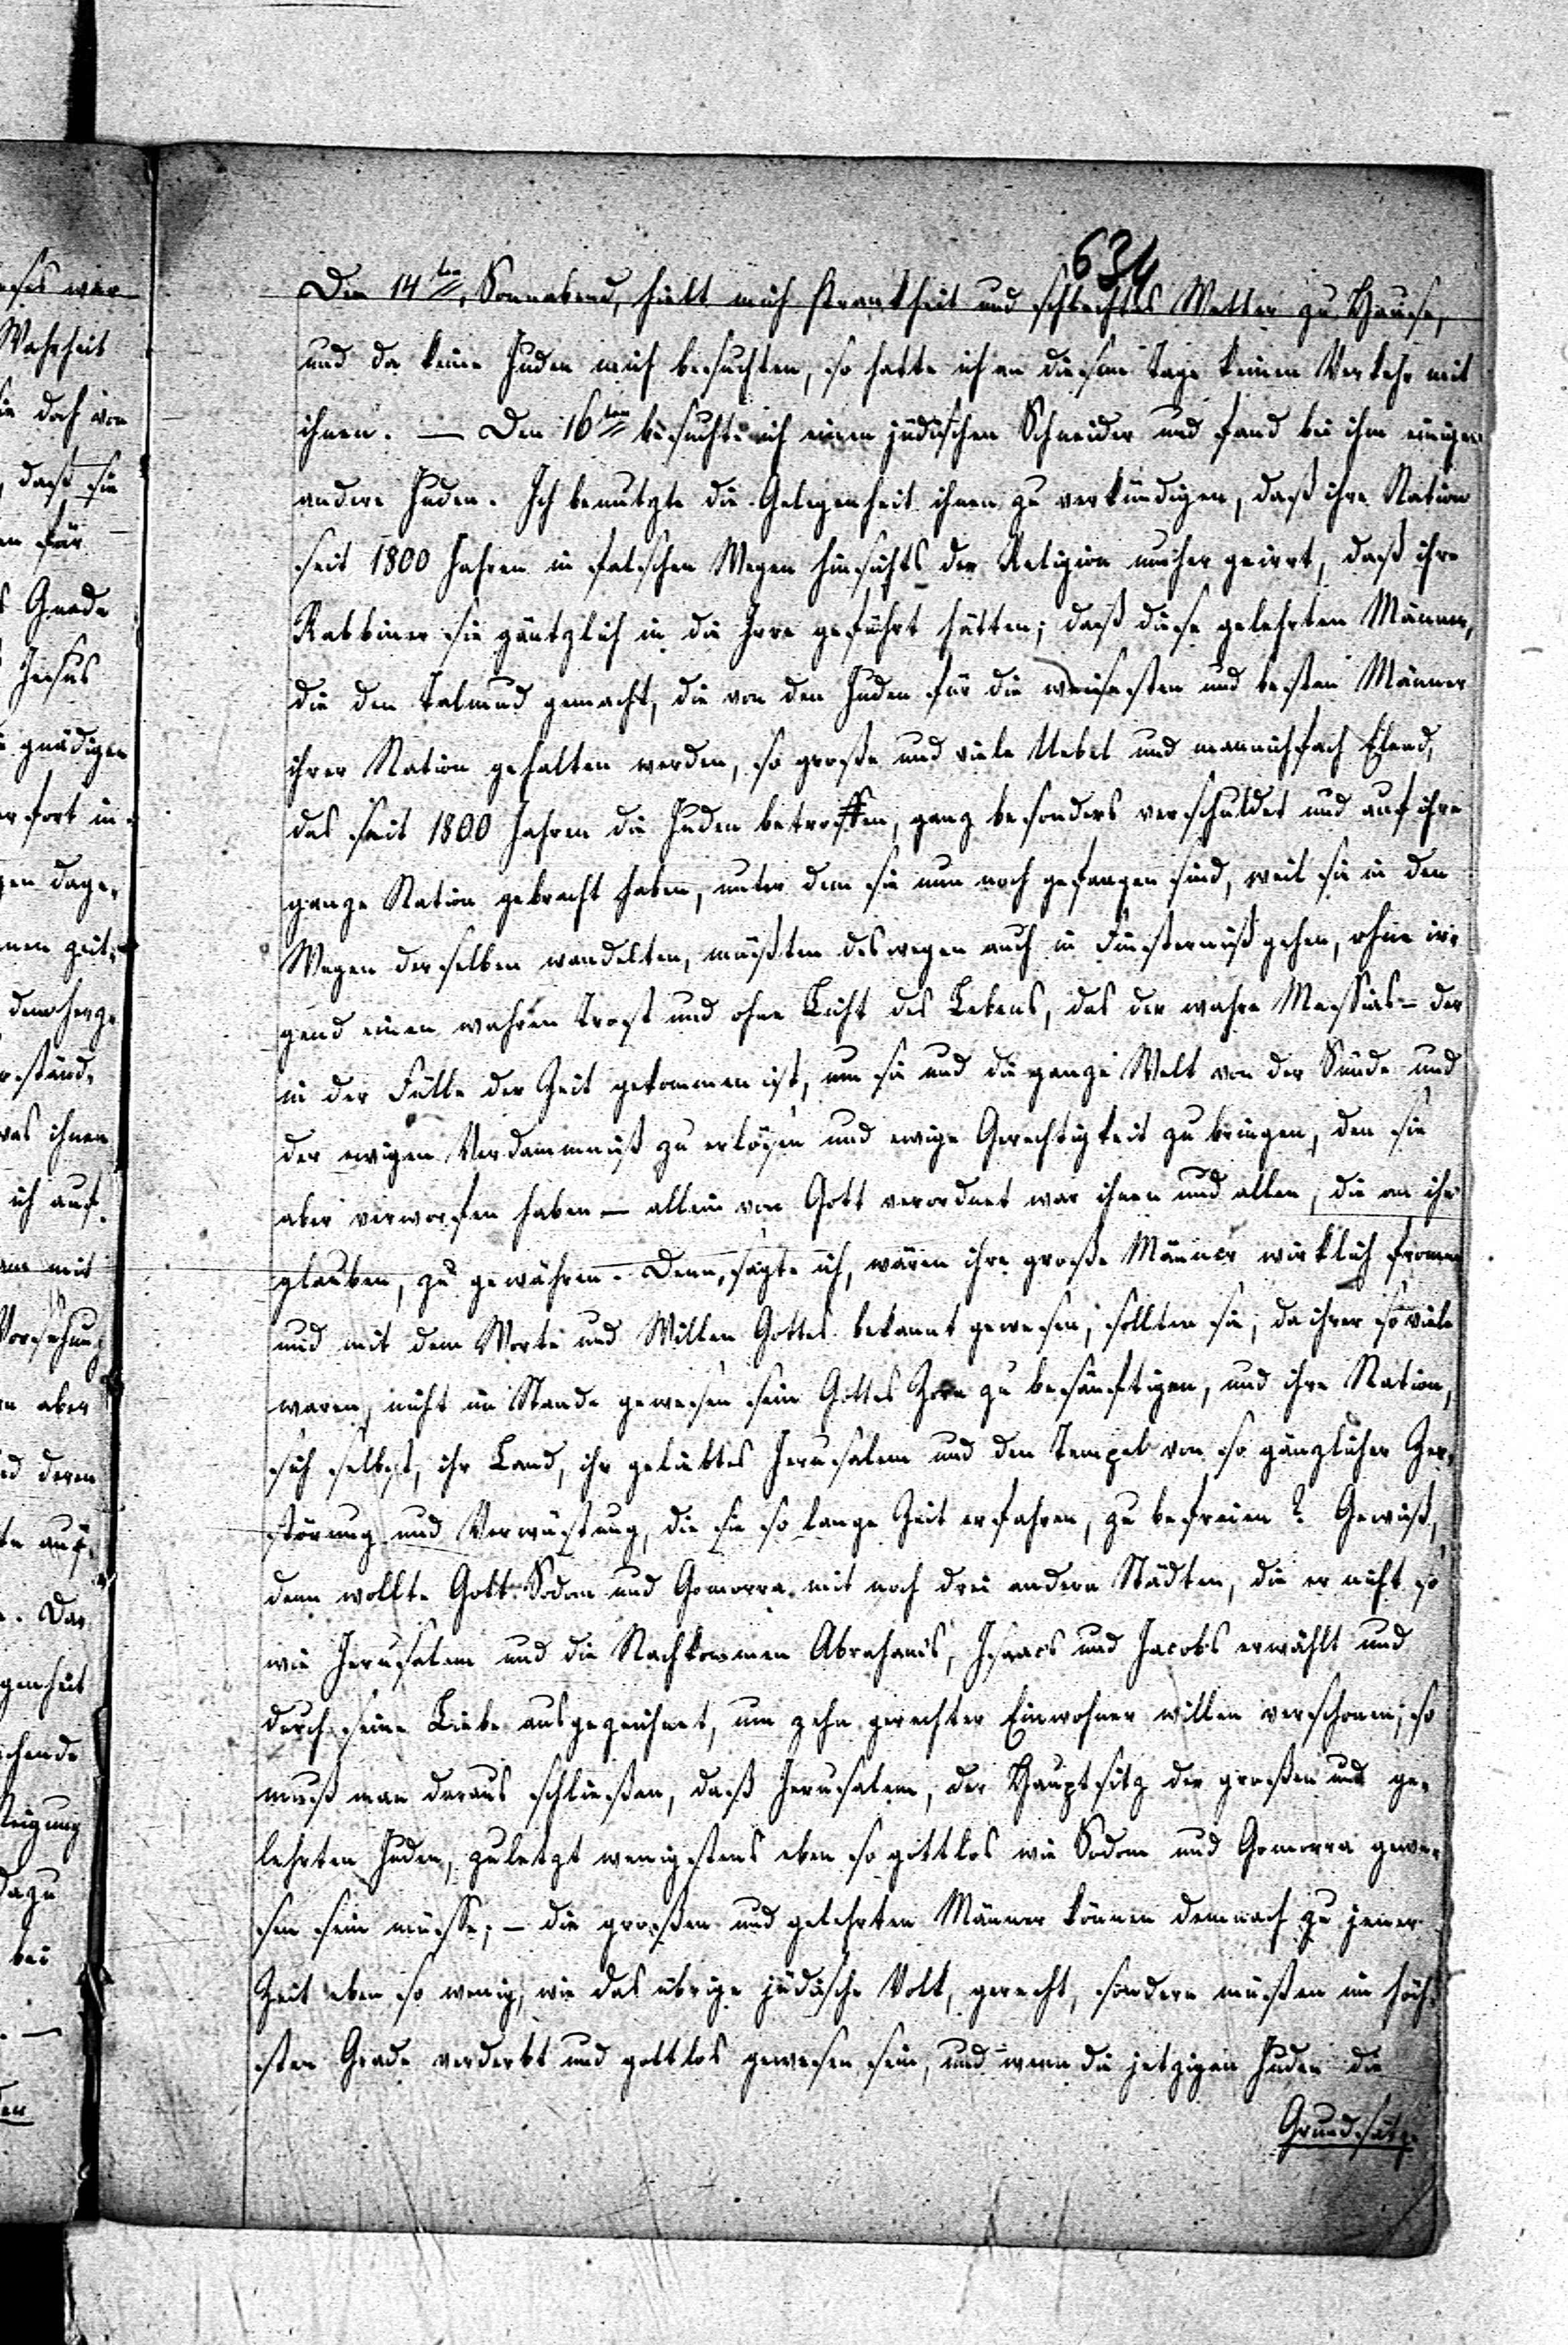 634
Den 14ten, Sonnabend, hielt mich Krankheit und schlechtes Wetter zu Hause,
und da keine Juden mich besuchten, so hatte ich an diesem Tage keinen Verkehr mit
ihnen. — Den 16ten besuchte ich einen jüdischen Schneider und fand bei ihm einige
andere Juden. Ich benutzte die Gelegenheit ihnen zu verkündigen, daß ihre Nation
seit 1800 Jahren in falschen Wegen hinsichts der Religion umher geirrt, daß ihre
Rabbiner sie gäntzlich in die Irre geführt hätten; daß diese gelehrten Männer,
die den Talmud gemacht, die von den Juden für die weisesten und besten Männer
ihrer Nation gehalten werden, so große und viele Uebel und mannichfach Elend,
das seit 1800 Jahren die Juden betroffen, ganz besonders verschuldet und auf ihre
ganze Nation gebracht haben, unter dem sie nun noch gefangen sind, weil sie in den
Wegen derselben wandelten, müßten deswegen auch in Finsterniß gehen, ohne ir-
gend einen wahren Trost und ohne Licht des Lebens, das der wahre Messias – der
in der Fülle der Zeit gekommen ist, um sie und die ganze Welt von der Sünde und
der ewigen Verdammniß zu erlösen und ewige Gerechtigkeit zu bringen, den sie
aber verworfen haben — allein von Gott verordnet war ihnen und allen, die an ihn
glauben, zu gewähren. Denn, sagte ich, wären ihre große Männer wirklich fromm
und mit dem Worte und Willen Gottes bekannt gewesen, sollten sie, da ihrer so viele
waren, nicht im Stande gewesen sein Gottes Zorn zu besänftigen, und ihre Nation,
sich selbst, ihr Land, ihr geliebtes Jerusalem und den Tempel von so gänzlicher Zer-
störung und Verwüstung, die sie so lange Zeit erfahren, zu befreien? Gewiß,
denn wollte Gott Sodom und Gomorra mit noch drei andern Städten, die er nicht so
wie Jerusalem und die Nachkommen Abrahams, Isaacs und Jacobs erwählt und
durch seine Liebe ausgezeichnet, um zehn gerechter Einwohner willen verschonen; so
muß man daraus schließen, daß Jerusalem, der Hauptsitz der großen und ge-
lehrten Juden, zuletzt wenigstens eben so gottlos wie Sodom und Gomorra gewe-
sen sein müsse; – die großen und gelehrten Männer können demnach zu jener
Zeit eben so wenig, wie das übrige jüdische Volk, gerecht, sondern müßen im höch-
sten Grade verderbt und gottlos gewesen sein, und wenn die jetzigen Juden die
Grundsätze